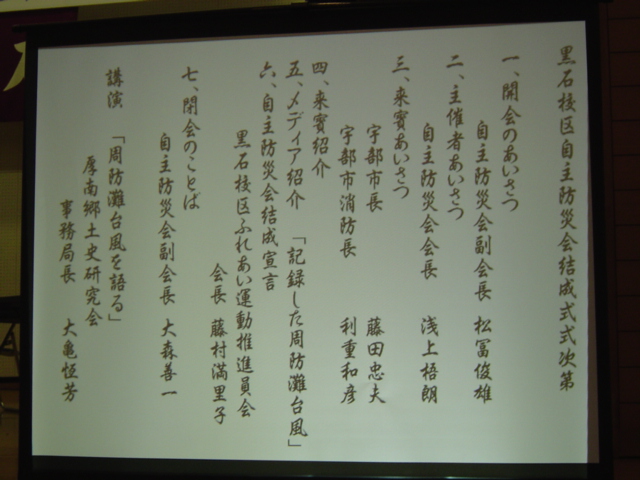 黒石校区自主防災会結成式式次第
一、開会のあいさつ
自主防災会副会長 松冨俊雄
二、主催者あいさつ
自主防災会会長 浅上梧朗
三、来賓あいさつ
宇部市長 藤田忠夫
宇部市消防長 利重和彦
四、来賓紹介
五、メディア紹介 「記録した周防灘台風」
六、自主防災会結成宣言
黒石校区ふれあい運動推進員会
会長 藤村満里子
七、閉会のことば
自主防災会副会長 大森善一
講演 「周防灘台風を語る」
厚南郷土史研究会
事務局長 大亀恒芳